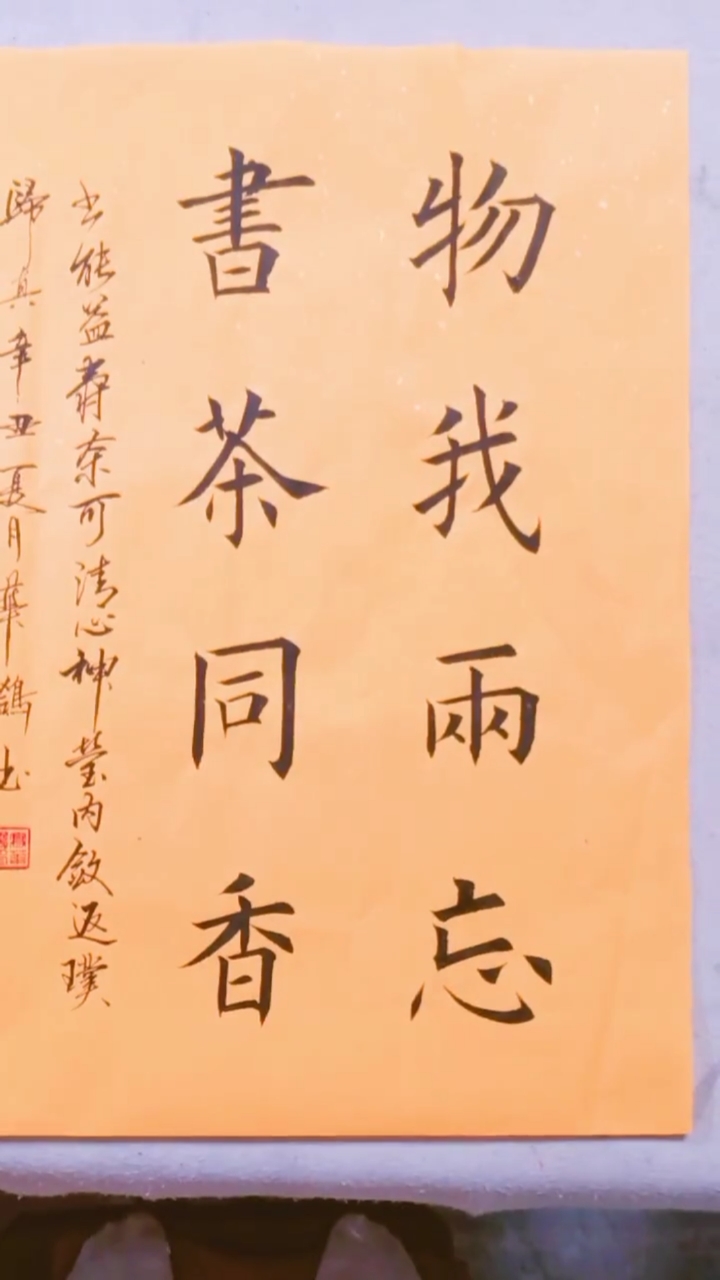 物我兩忘
書茶同香
书能益壽茶可清心神瑩內斂返璞
歸真辛丑夏月華鶴书